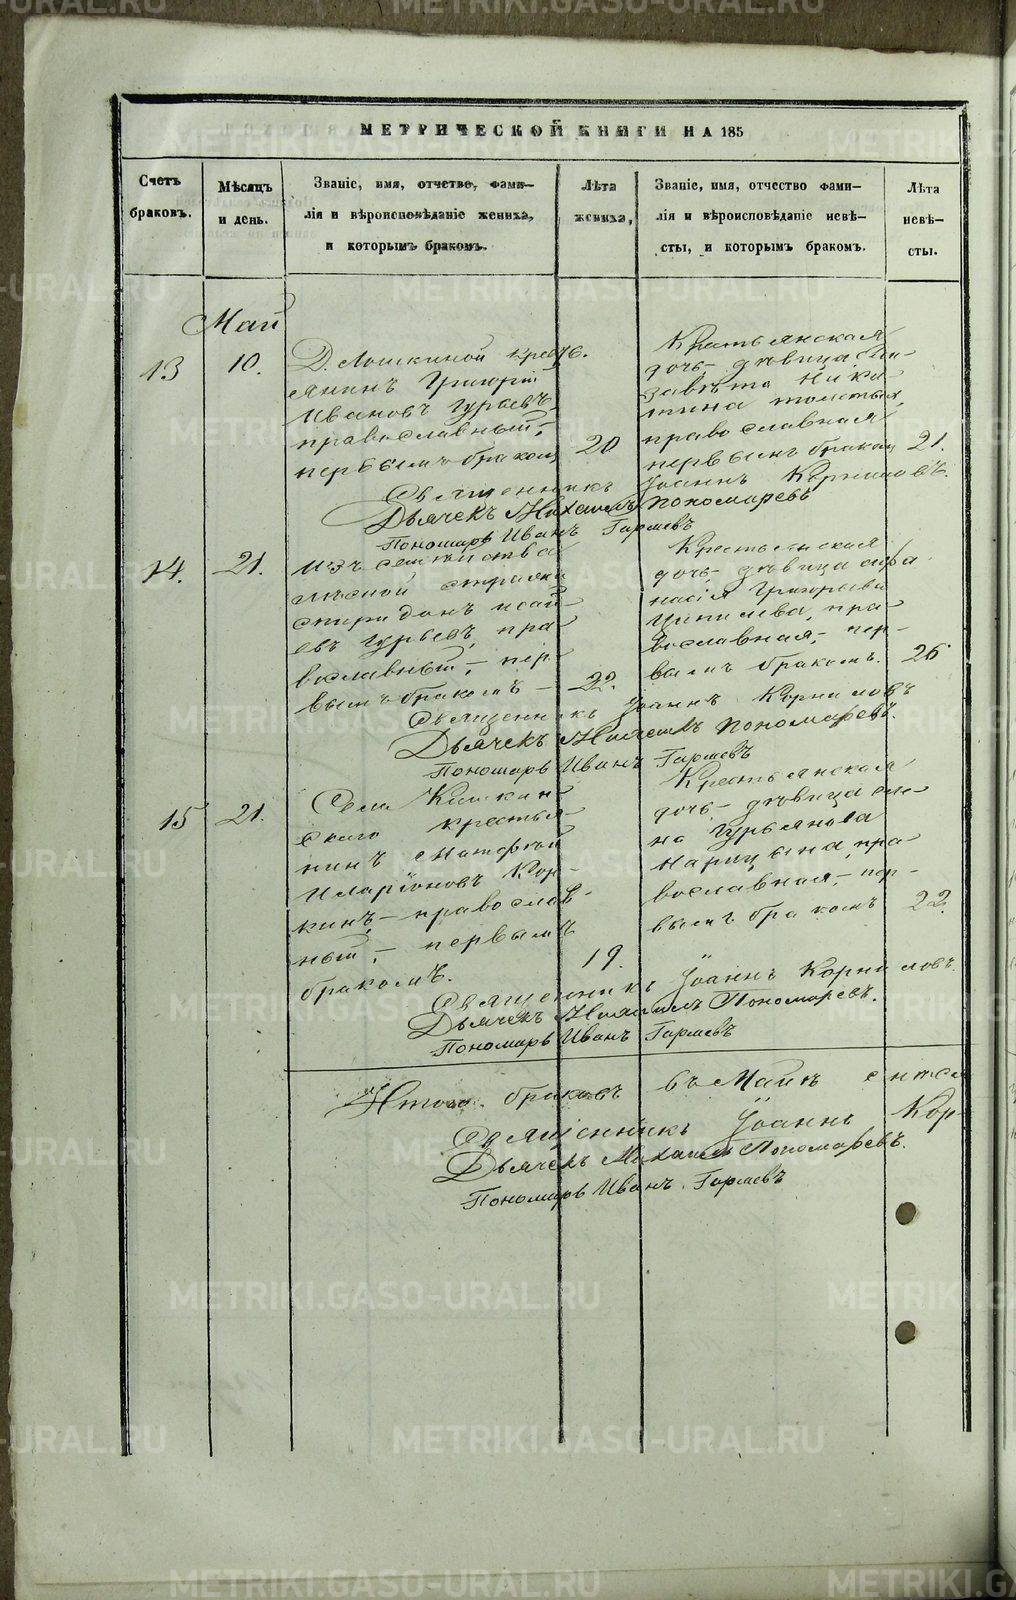 МЕТРИЧЕСКОЙ КНИГИ НА 185
Счетъ браковъ.
Мѣсяцъ и день.
Званіе, имя, отчетво, фами-
лія и вѣроисповѣданіе жениха,
и которымъ бракомъ.
Лѣта жениха,
Званіе, имя, отчество фами-
лія и вѣроисповѣданіе невѣ-
сты, и которымъ бракомъ.
Лѣта невѣ-
сты.
Май
13
10.
Д. Лошкиной крест.
янинъ Григорій
Ивановъ Гурьевъ,
православный,-
первымъ бракомъ
20
Крестьянская
дочь- дѣвица Ели-
завѣта Ники
тина
православная
первымъ бракомъ
21.
Священникъ Іоаннъ Корниловъ.
Дьячекъ Михаилъ Пономаревъ
Пономарь Иванъ Гаряевъ
14.
21.
Изъ семейства
лѣсной стражи
спиридонъ исай-
евъ Гурьевъ, пра
вославный,- пер-
вымъ бракомъ-
22.
Крестьянская
дочь- дѣвица афа
насія Григорьева
пра-
вославная,- пер-
вымъ бракомъ.
26
Священникъ Іоаннъ Корниловъ
Дьячекъ Михаилъ Пономаревъ.
Пономарь Иванъ Гаряевъ
15
21.
Села Кишкин-
скаго крестья-
нинъ Матфей
Иларіоновъ Кор-
кинъ,- православ-
ный,- первымъ
бракомъ.
19.
Крестьянская
дочь- дѣвица еле-
на Гурьянова
Марицына, пра-
вославная,- пер-
вымъ бракомъ
22.
Священникъ Іоаннъ Корниловъ.
Дьячекъ Михаилъ Пономаревъ.
Пономарь Иванъ Гаряевъ
Итого браковъ въ Маѣ
Священникъ Іоаннъ Кор-
Дьячекъ Михаилъ Пономаревъ.
Пономарь Иванъ Гаряевъ
METRIKI.GASO-URAL.RU